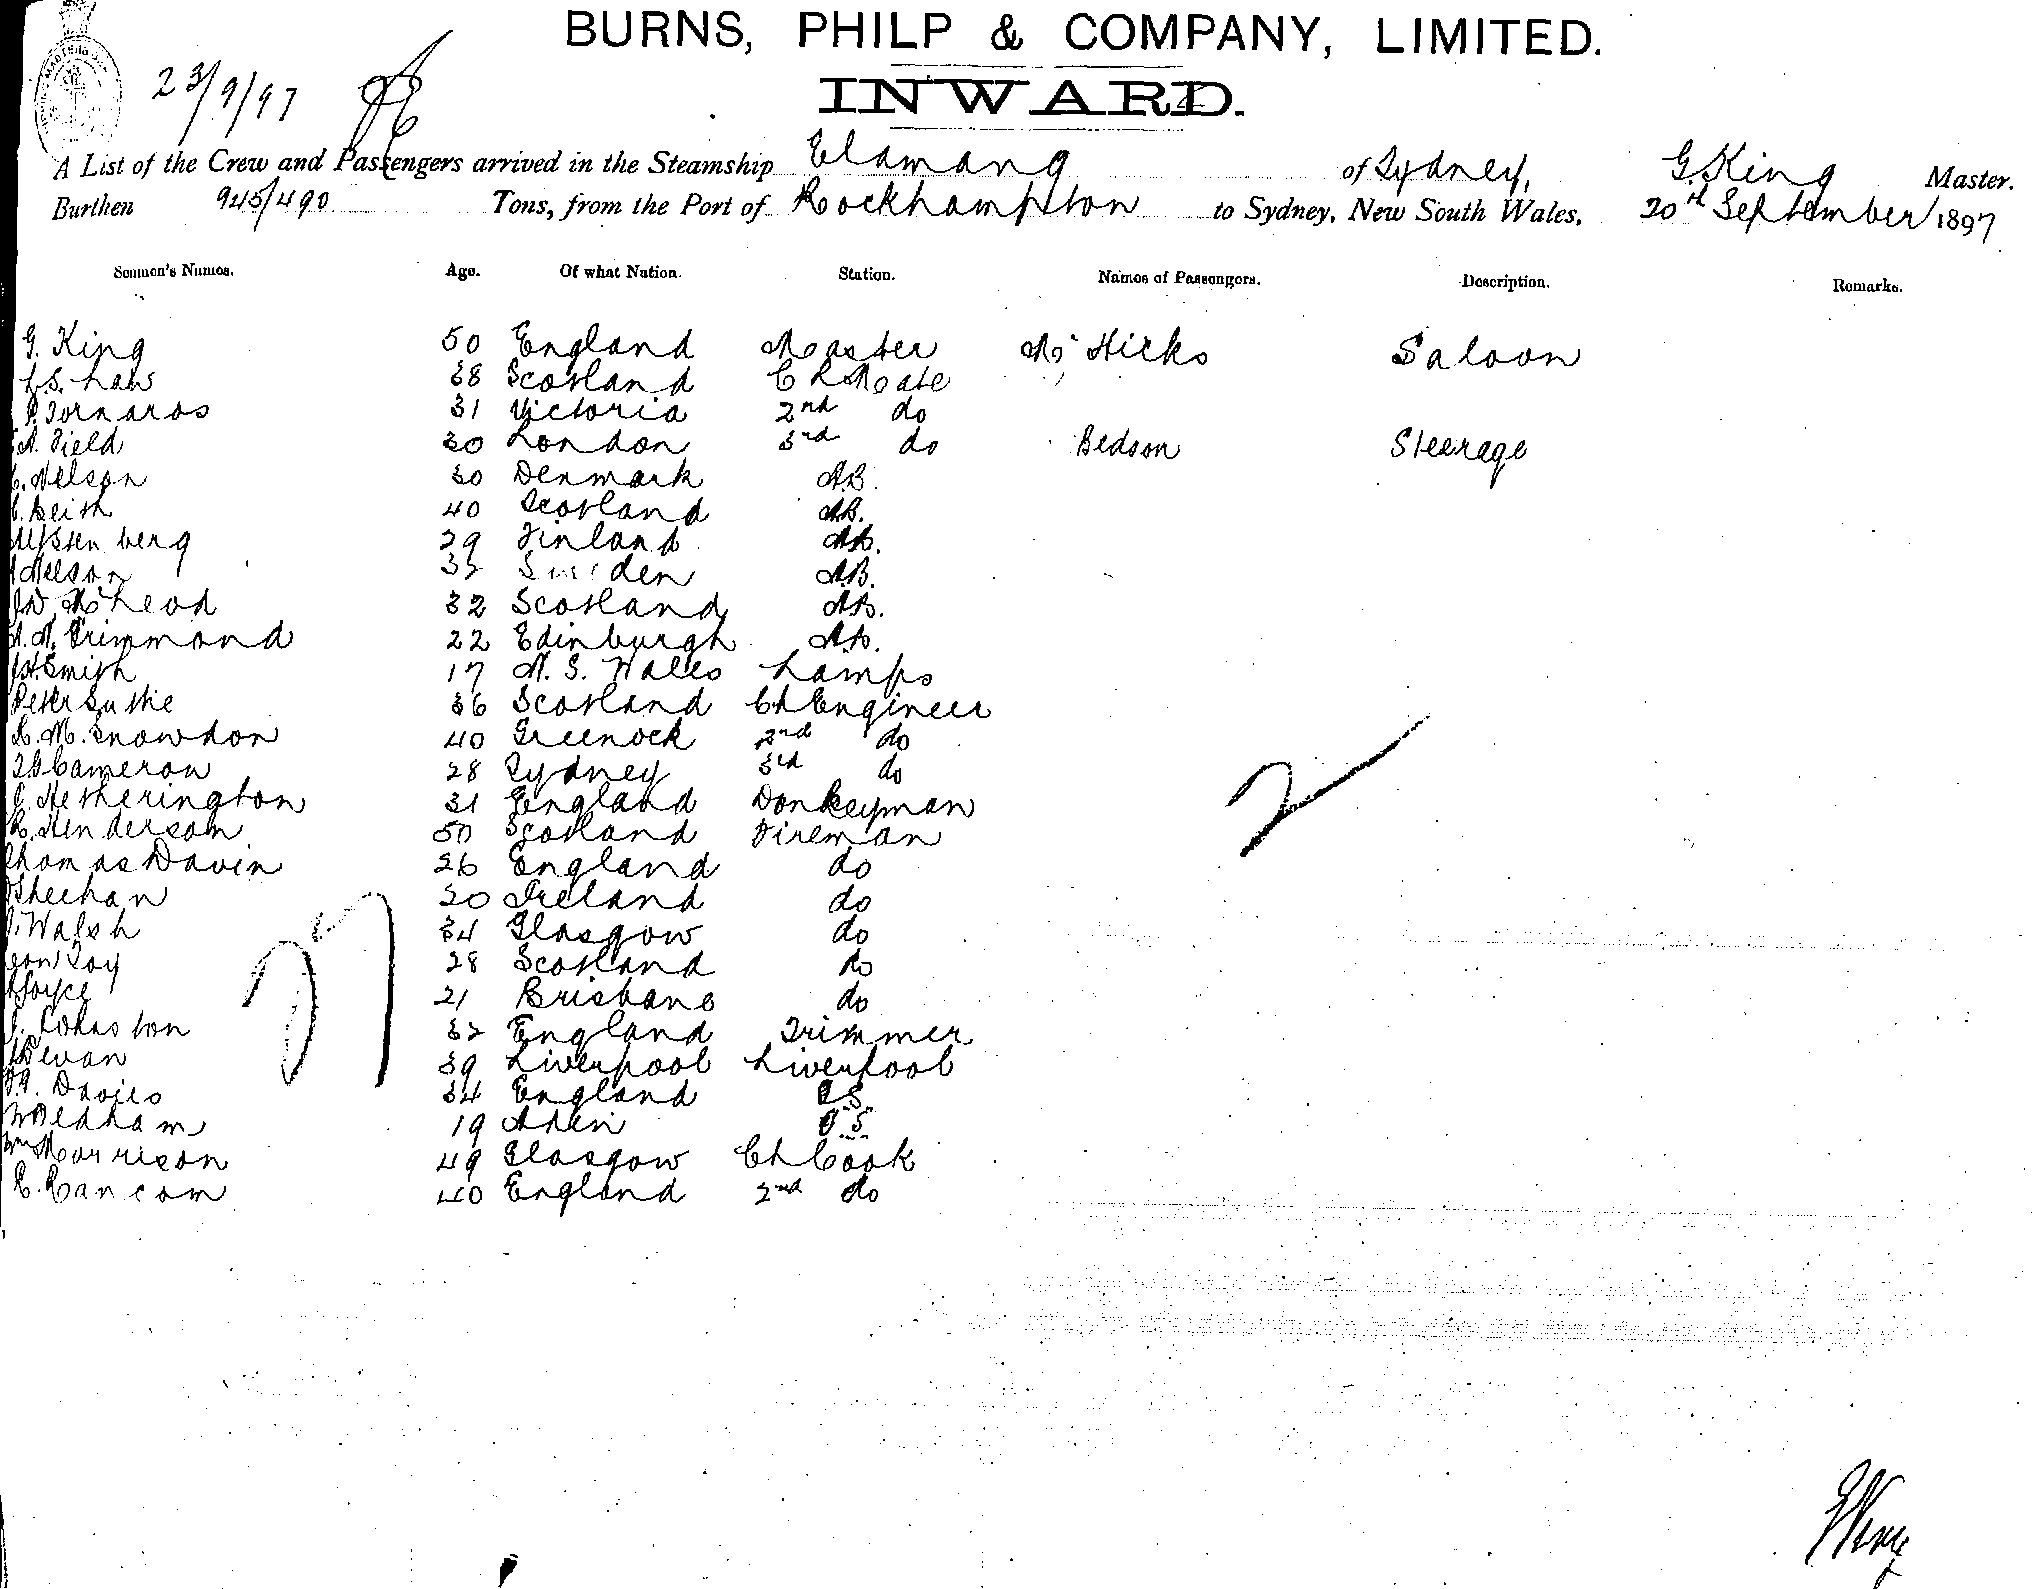 BURNS, PHILP & COMPANY, LIMITED.
INWARD.
23/9/97
A List of the Crew and Passengers arrived in the Steamship Elamang of Sydney, G. King Master.
Burthen 945/490 Tons, from the Port of Rockhampton to Sydney, New South Wales, 20th September 1897
Seamen's Names. Age. Of what Nation. Station. Names of Passengers. Description. Remarks.
G. King 50 England Master Mr Hicks Saloon
Law 38 Scotland Ch Mate
Tornaros 31 Victoria 2nd do
A. Field 30 London 3rd do Bedson Steerage
Nelson 30 Denmark A.B.
Keith 40 Scotland A.B.
29 Finland A.B.
Nelson 35 Sweden A.B.
McLeod 32 Scotland A.B.
Grimmond 22 Edinburgh A.B.
H. Smith 17 N. S. Wales Lamps
Peter Suttie 36 Scotland Ch Engineer
R. M. Snowdon 40 Greenock 2nd do
Cameron 28 Sydney 3rd do
Hetherington 31 England Donkeyman
R. Henderson 50 Scotland Fireman
Thomas Davin 26 England do
Sheehan 20 Ireland do
Walsh 34 Glasgow do
28 Scotland do
Joyce 21 Brisbane do
Johnston 32 England Trimmer
Bevan 39 Liverpool Liverpool
Davies 34 England O.S.
19 Aden O.S.
Wm Morrison 49 Glasgow Ch Cook
R. Rancom 40 England 2nd do
27
2